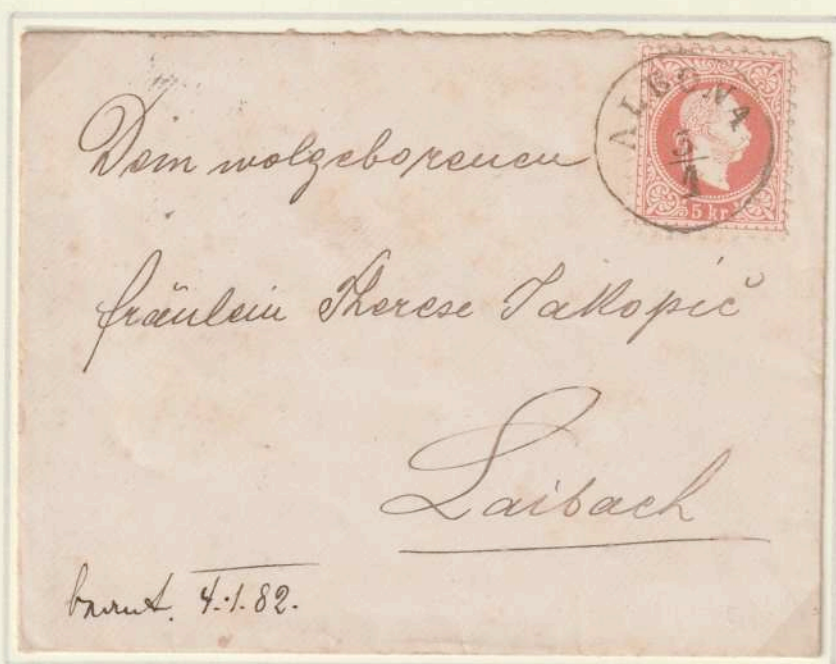 ALBONA
3/1
5 kr.
Dem wolgeborenen
fräulein Therese Jakopič
Laibach
4.1.82.